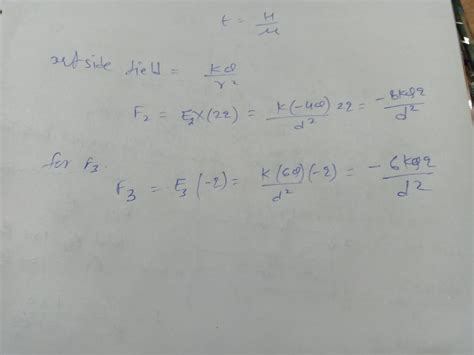 t = H/μ
outside field = KQ/r²
F₂ = E₂×(2q) = K(-4Q)/d² 2q = -8kQq/d²
for F₃.
F₃ = E₃(-q) = K(6Q)/d² (-q) = -6kQq/d²